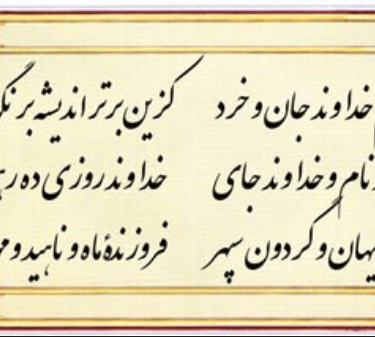 خداوند جان و خرد کزین برتر اندیشه بر
نام و خداوند جای خداوند روزی ده
و گردون سپهر فروزندهٔ ماه و ناهید و